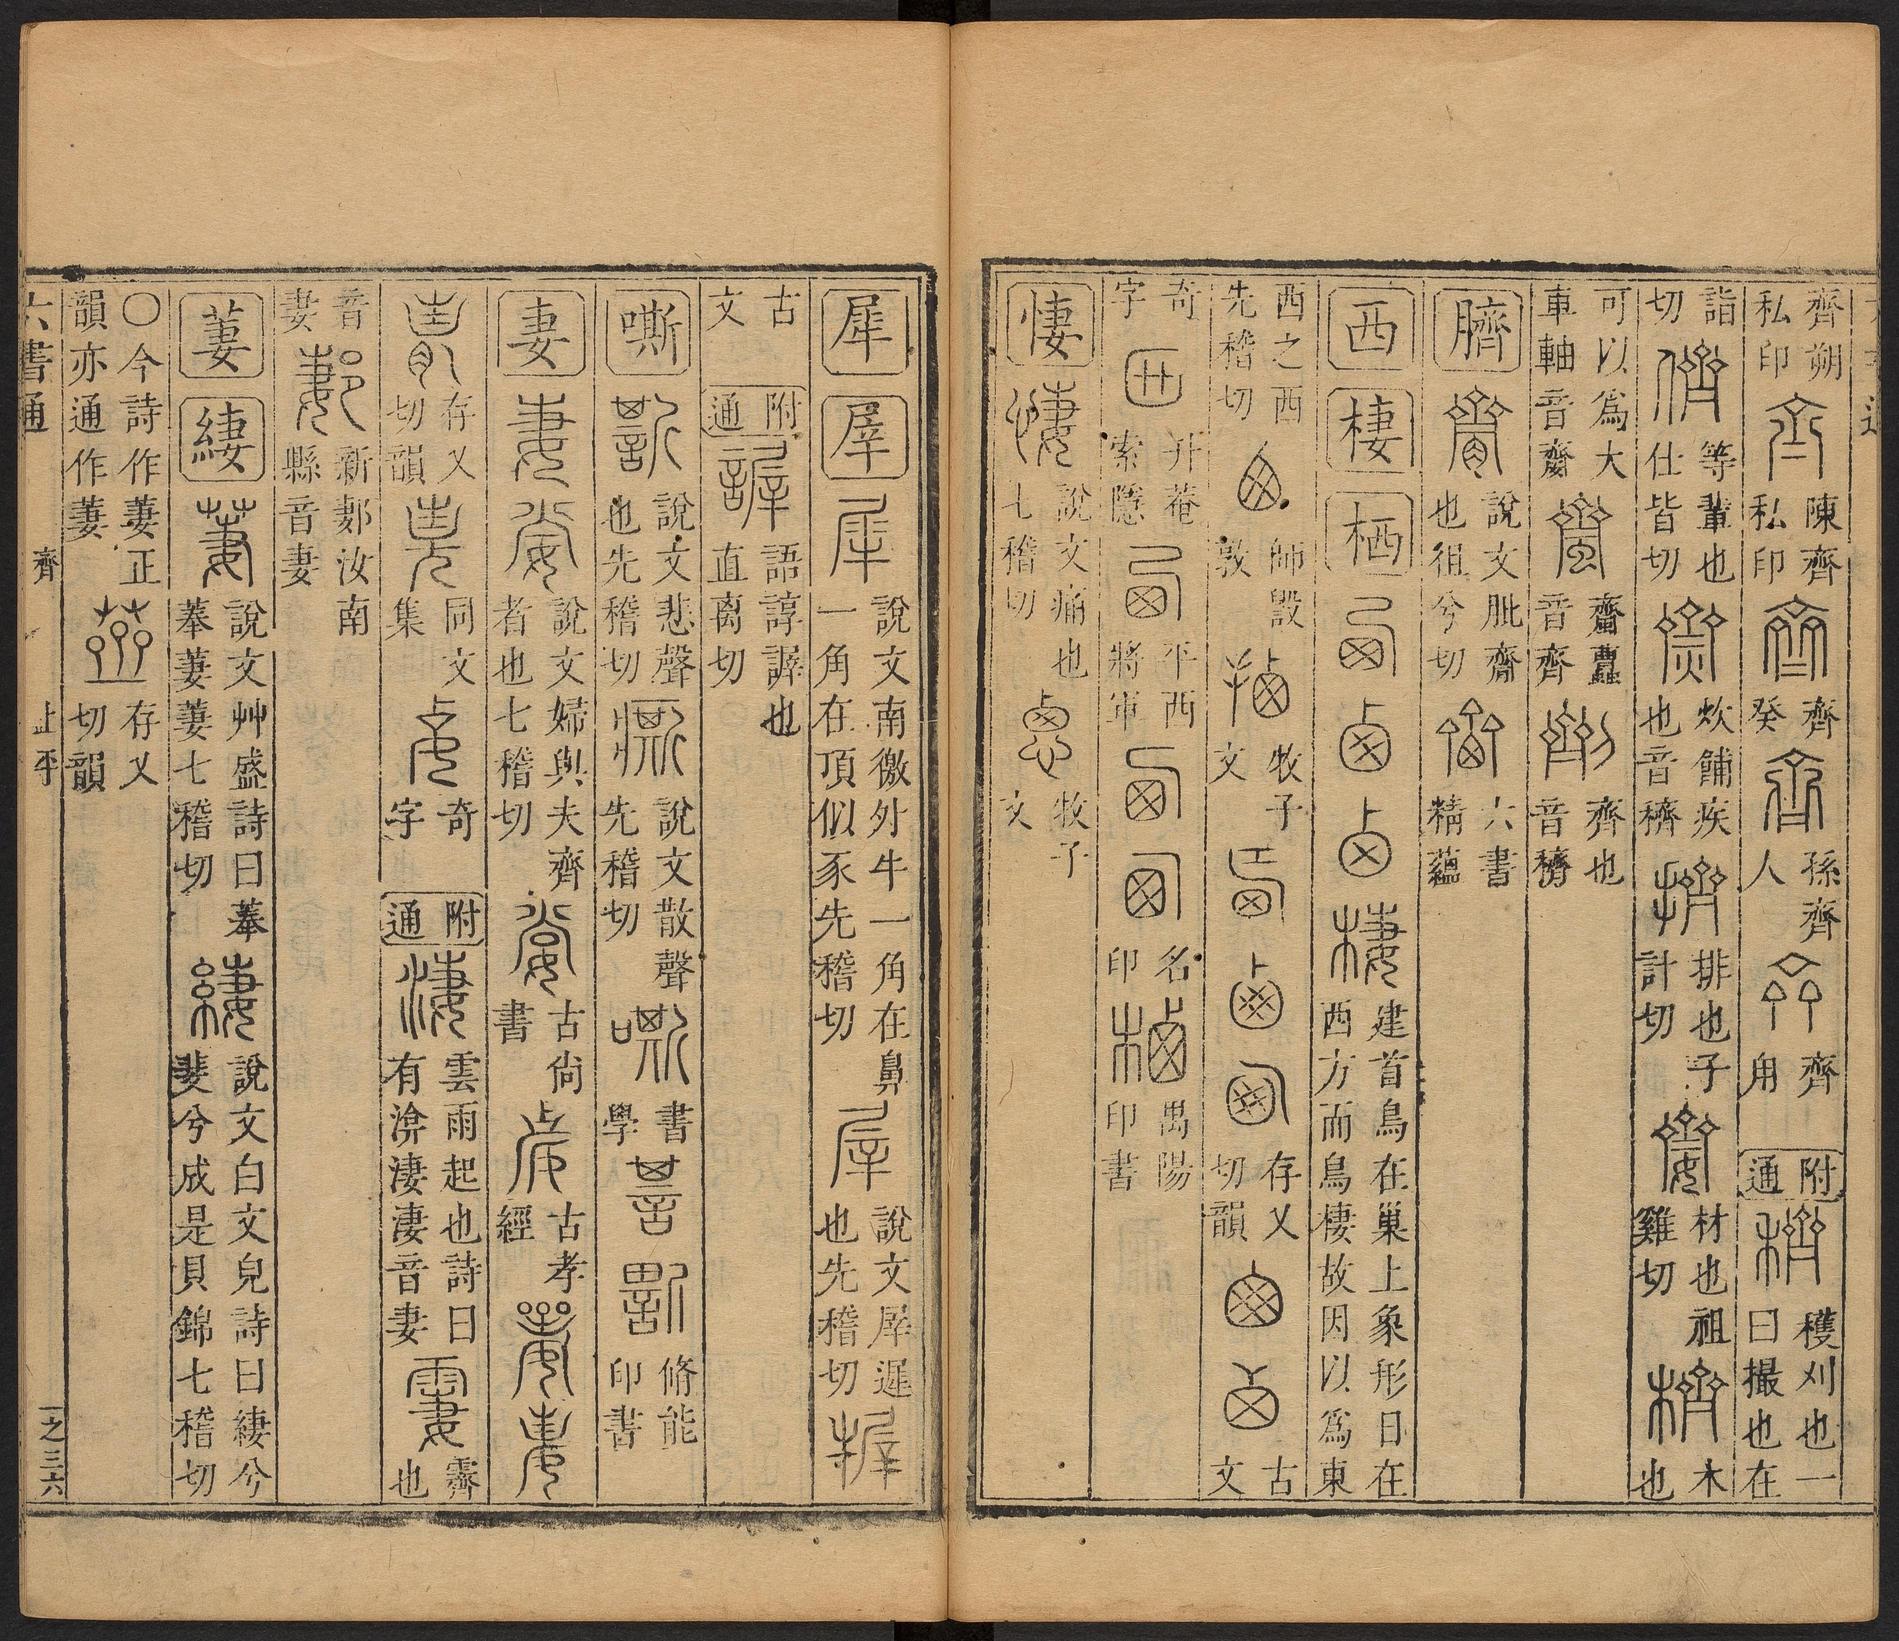 齊朔私印 陳齊私印 齊癸 孫齊人 齊用 附通 穫刈也一曰撮也在
詣切 等輩也仕皆切 炊餔疾也音穧 排也子計切 材也祖雞切 木也
可以爲大車軸音齎 齏蠹音齊 齊也音穧
臍 說文肶齎也徂兮切 六書精蘊
西 棲 栖 建首鳥在巢上象形日在西方而鳥棲故因以爲東
西之西先稽切 師毀敦 牧子文 存乂切韻 古文
奇字 升菴索隱 平西將軍 名印 禺陽印書
悽 說文痛也七稽切 牧子文
犀 屖 說文南徼外牛一角在鼻一角在頂似豕先稽切 說文屖遲也先稽切
古文 附通 語諄謘也直离切
嘶 說文悲聲也先稽切 說文散聲先稽切 書學 脩能印書
妻 說文婦與夫齊者也七稽切 古尙書 古孝經
存乂切韻 同文集 奇字 附通 雲雨起也詩曰有渰淒淒音妻 霽也
音妻 新郪汝南縣音妻
萋 緀 說文艸盛詩曰菶菶萋萋七稽切 說文白文皃詩曰緀兮斐兮成是貝錦七稽切
〇今詩作萋正韻亦通作萋 存乂切韻
六書通 齊 上平 一之三六